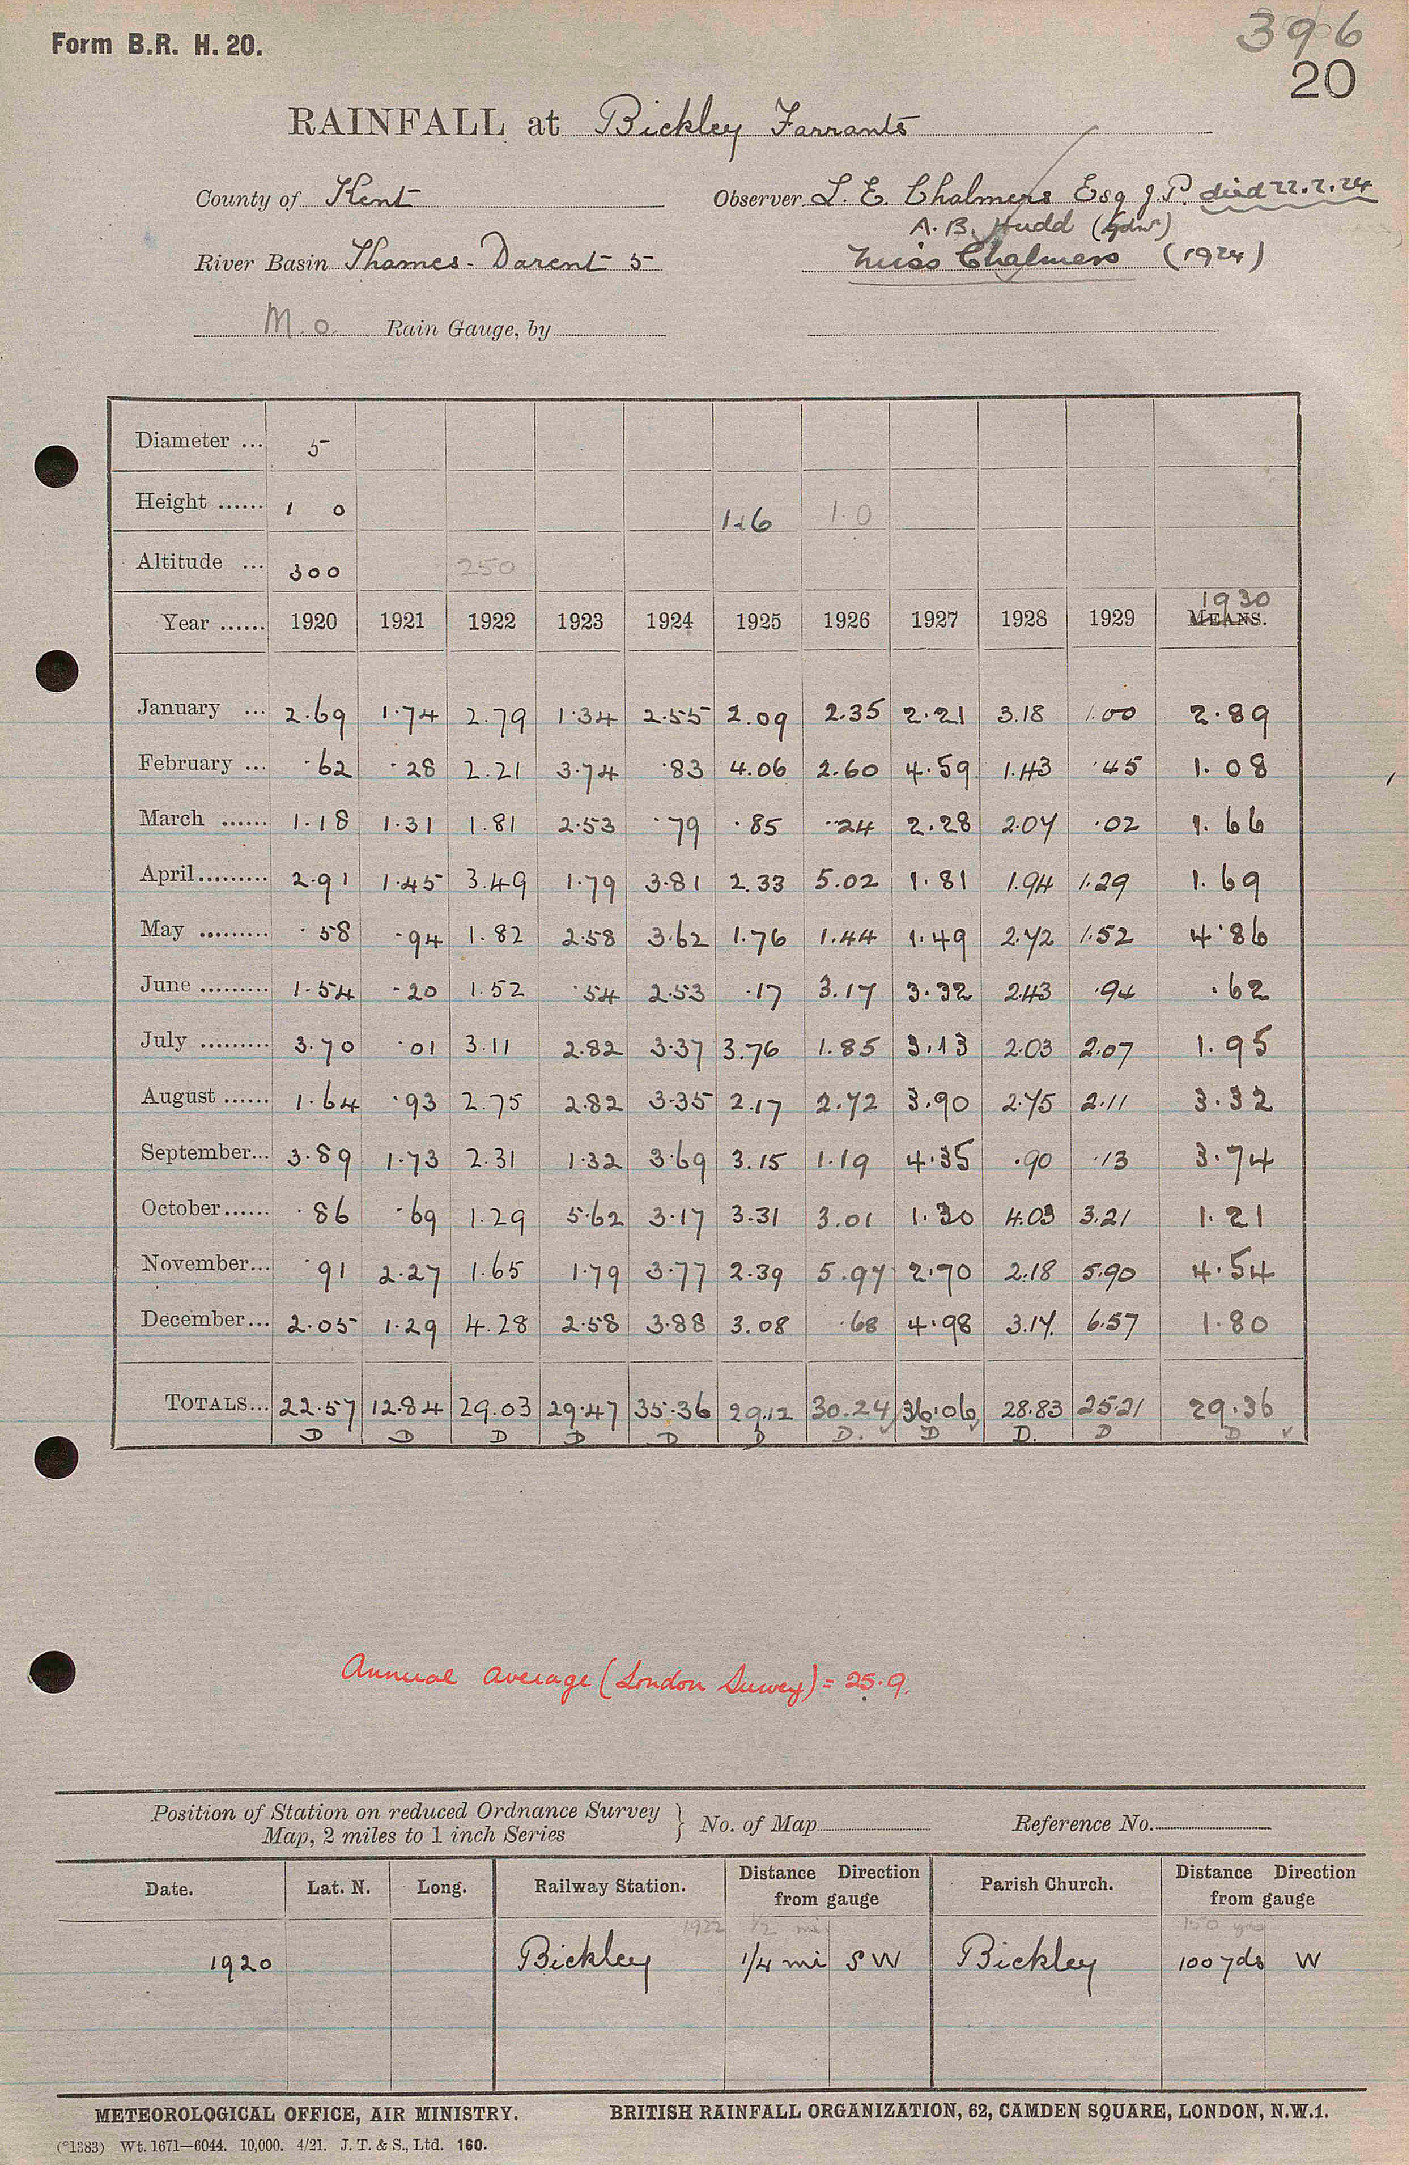 Form B.R. H. 20.
396
20
RAINFALL at Bickley Farrants
County of Kent
Observer L. E. Chalmers Esq J.P. died 22.2.24
A. B. Hudd (Gdnr)
River Basin Thames - Darent 5
Miss Chalmers (1924)
M.O. Rain Gauge, by
Diameter ... 5
Height ...... 1 0 1.6 1.0
Altitude ... 300 250
1930
Year ...... 1920 1921 1922 1923 1924 1925 1926 1927 1928 1929 MEANS.
January ... 2.69 1.74 2.79 1.34 2.55 2.09 2.35 2.21 3.18 1.00 2.89
February ... .62 .28 2.21 3.74 .83 4.06 2.60 4.59 1.43 .45 1.08
March ...... 1.18 1.31 1.81 2.53 .79 .85 .24 2.28 2.07 .02 1.66
April ......... 2.91 1.45 3.49 1.79 3.81 2.33 5.02 1.81 1.94 1.29 1.69
May ......... .58 .94 1.82 2.58 3.62 1.76 1.44 1.49 2.72 1.52 4.86
June ......... 1.54 .20 1.52 .54 2.53 .17 3.17 3.32 2.43 .94 .62
July ......... 3.70 .01 3.11 2.82 3.37 3.76 1.85 3.13 2.03 2.07 1.95
August ...... 1.64 .93 2.75 2.82 3.35 2.17 2.72 3.90 2.75 2.11 3.32
September... 3.89 1.73 2.31 1.32 3.69 3.15 1.19 4.35 .90 .13 3.74
October ...... .86 .69 1.29 5.62 3.17 3.31 3.01 1.30 4.03 3.21 1.21
November... .91 2.27 1.65 1.79 3.77 2.39 5.97 2.70 2.18 5.90 4.54
December... 2.05 1.29 4.28 2.58 3.88 3.08 .68 4.98 3.17 6.57 1.80
TOTALS... 22.57 12.84 29.03 29.47 35.36 29.12 30.24 36.06 28.83 25.21 29.36
D D D D D D D. D D. D D
Annual average (London Survey) = 25.9.
Position of Station on reduced Ordnance Survey
Map, 2 miles to 1 inch Series } No. of Map Reference No.
Date. Lat. N. Long. Railway Station. Distance Direction from gauge Parish Church. Distance Direction from gauge
1922 1/2 mi 150 yds
1920 Bickley 1/4 mi SW Bickley 100 yds W
METEOROLOGICAL OFFICE, AIR MINISTRY. BRITISH RAINFALL ORGANIZATION, 62, CAMDEN SQUARE, LONDON, N.W.1.
(*1383) Wt. 1671—6044. 10,000. 4/21. J. T. & S., Ltd. 160.